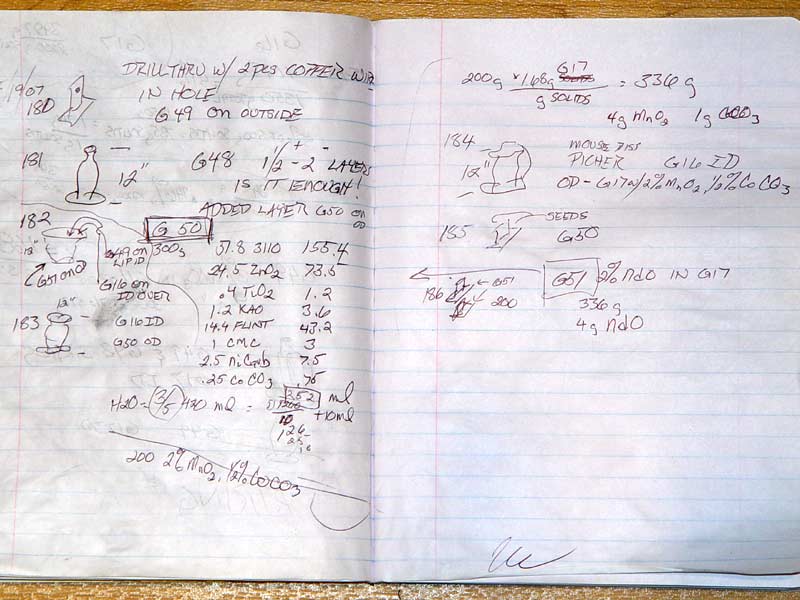 DRILL THRU W/ 2 pcs COPPER WIRE
IN HOLE
180
G49 on OUTSIDE
181
12"
G48 1 1/2 - 2 LAYERS
IS IT ENOUGH!
ADDED LAYER G50 on OD
182
G50
12"
G49 on 300g 51.8 3110 155.4
LIP ID
G51 on OD
24.5 ZnO2 73.5
G16 on
ID OVER
.4 TiO2 1.2
12"
1.2 KAO 3.6
183
G16 ID
14.4 FLINT 43.2
G50 OD
1 CMC 3
2.5 Ni Carb 7.5
.25 CoCO3 .75
H2O = (3/5) 420 ml = 252 ml
+10 ml
200 2% MnO2, 1/2% CoCO3
G17
200g × 1.68g = 336 g
g SOLIDS
4g MnO2 1g CoCO3
184
12"
PICHER G16 ID
OD - G17 w/ 2% MnO2, 1/2% CoCO3
185
SEEDS
G50
186
G51
200
G51 2% NdO IN G17
336 g
4g NdO